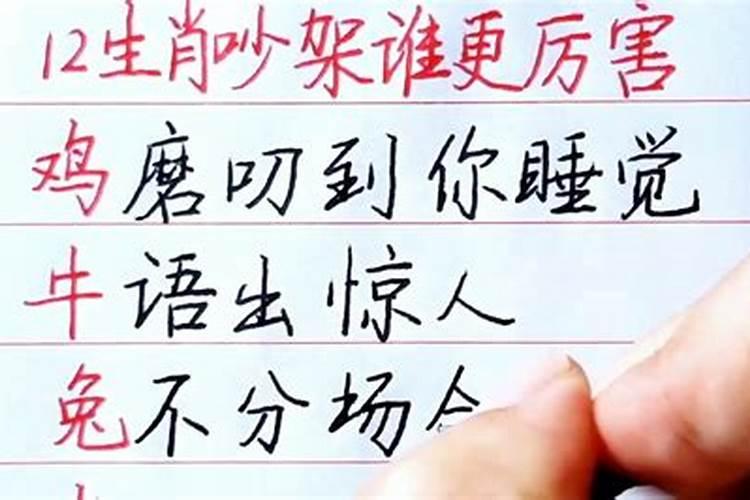 12生肖吵架谁更厉害
鸡磨叨到你睡觉
牛语出惊人
兔不分场合